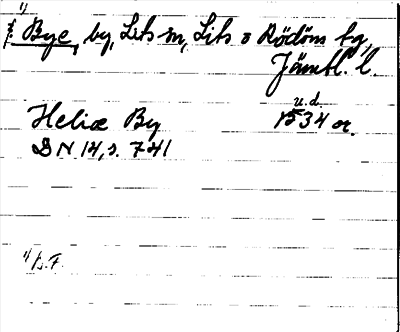 1)
Bye, by, Lits sn, Lits o Rödöns tg,
Jämtl. l.
u.d.
Heliæ By 1534 or.
DN 14, s. 741
1) L.F.